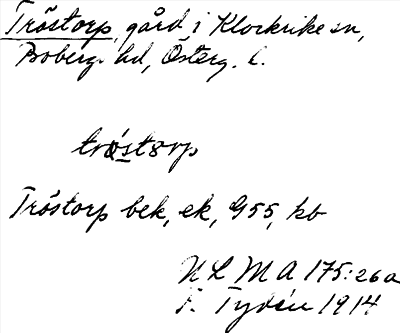 Tröstorp, gård i Klockrike sn,
Boberg hd, Österg. l.
trøstorp
Tröstorp bek, ek, G55, kb
ULMA 175:26a
F. Tydén 1914